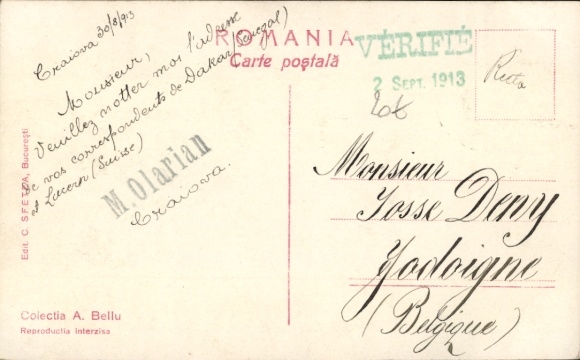 ROMANIA
Carte poștală
VÉRIFIÉ
2 SEPT. 1913
Craiova 30/8/913
Monsieur,
Veuillez notter moi l'adresse
de vos correspondents de Dakar (Senegal)
et Lucern (Suisse)
M. Olarian
Craiova.
Monsieur
Josse Deny
Jodoigne
(Belgique)
Edit. C. SFETEA, București
Colectia A. Bellu
Reproductia interzisa